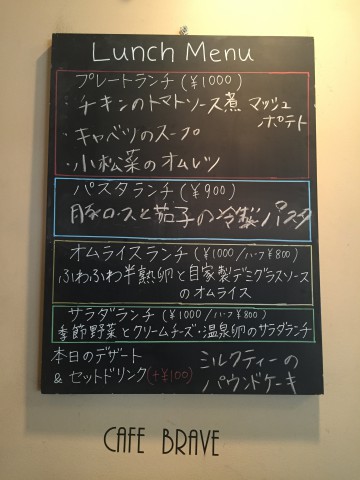 Lunch Menu
プレートランチ (¥1000)
・チキンのトマトソース煮 マッシュ
ポテト
・キャベツのスープ
・小松菜のオムレツ
パスタランチ (¥900)
豚ロースと茄子の冷製パスタ
オムライスランチ (¥1000/ハーフ¥800)
ふわふわ半熟卵と自家製デミグラスソース
のオムライス
サラダランチ (¥1000/ハーフ¥800)
季節野菜とクリームチーズ・温泉卵のサラダランチ
本日のデザート
& セットドリンク (+¥100)
ミルクティーの
パウンドケーキ
CAFE BRAVE